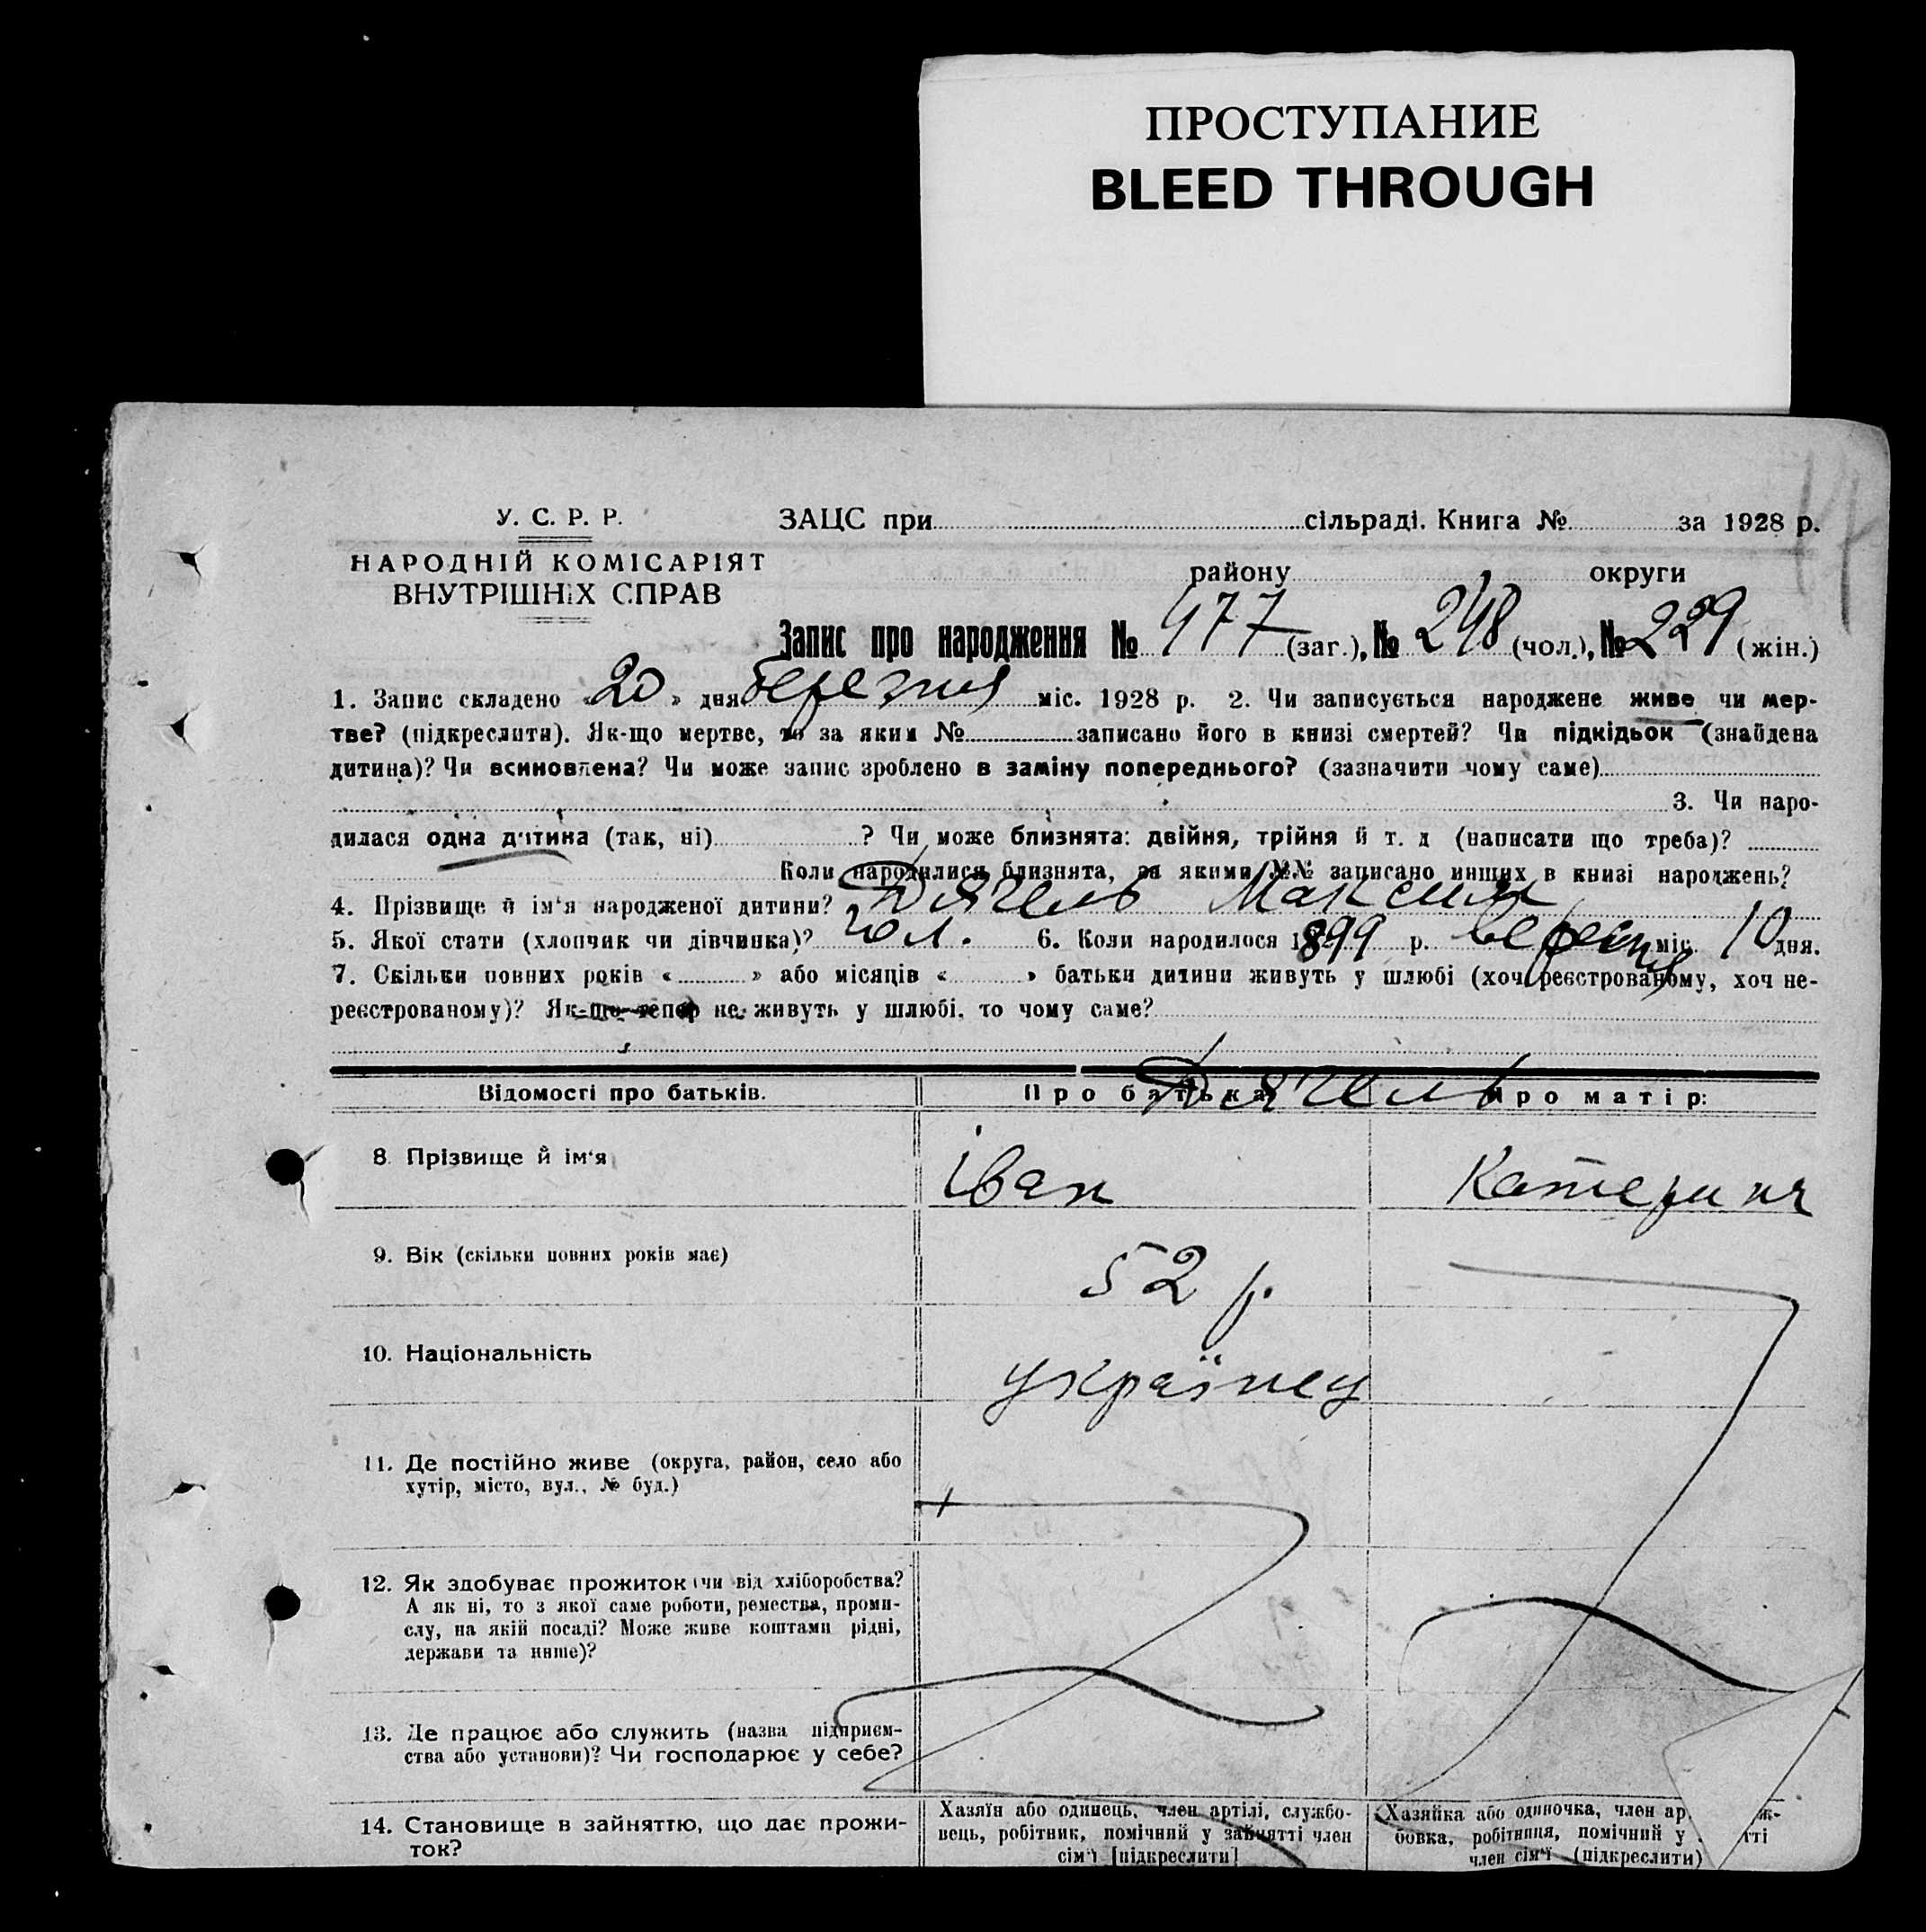 ПРОСТУПАНИЕ
BLEED THROUGH
У. С. Р. Р.
НАРОДНІЙ КОМІСАРІЯТ
ВНУТРІШНІХ СПРАВ
ЗАЦС при сільраді. Книга № за 1928 р.
району округи
Запис про народження № 477 (заг.), № 248 (чол.), № 229 (жін.)
1. Запис складено «20» дня березня міс. 1928 р. 2. Чи записується народжене живе чи мер-
тве? (підкреслити). Як-що мертве, то за яким № записано його в книзі смертей? Чи підкідьок (знайдена
дитина)? Чи всиновлена? Чи може запис зроблено в заміну попереднього? (зазначити чому саме)
3. Чи наро-
дилася одна дитина (так, ні) ? Чи може близнята: двійня, трійня й т. д (написати що треба)?
Коли народилися близнята, за якими №№ записано инших в книзі народжень?
4. Прізвище й ім'я народженої дитини? Дягель Максим
5. Якої стати (хлопчик чи дівчинка)? чол. 6. Коли народилося 1899 р. вересня міс. 10 дня.
7. Скільки повних років « » або місяців « » батьки дитини живуть у шлюбі (хоч реєстрованому, хоч не-
реєстрованому)? Як-що тепер не живуть у шлюбі, то чому саме?
Відомості про батьків. Про батька Про матір:
Дягель
8. Прізвище й ім'я Іван Катерина
9. Вік (скільки повних років має) 52 р.
10. Національність українец
11. Де постійно живе (округа, район, село або
хутір, місто, вул., № буд.)
12. Як здобуває прожиток (чи від хліборобства?
А як ні, то з якої саме роботи, ремества, проми-
слу, на якій посаді? Може живе коштами рідні,
держави та инше)?
13. Де працює або служить (назва підприєм-
ства або установи)? Чи господарює у себе?
14. Становище в зайняттю, що дає прожи-
ток?
Хазяїн або одинець, член артілі, службо-
вець, робітник, помічний у зайнятті член
сім'ї [підкреслити]
Хазяйка або одиночка, член ар ж-
бовка, робітниця, помічний у тті
член сім'ї (підкреслити)